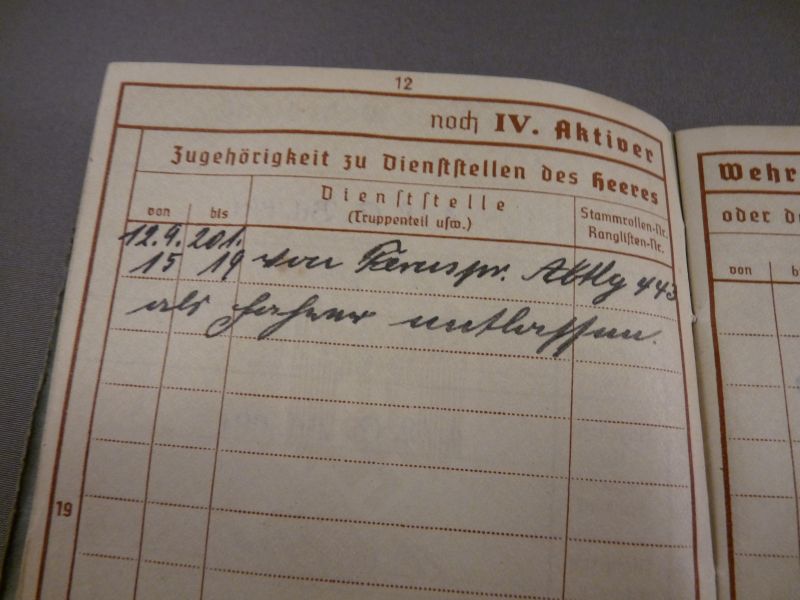 12
noch IV. Aktiver
Zugehörigkeit zu Dienststellen des Heeres
von bis
Dienststelle
(Truppenteil usw.)
Stammrollen-Nr.
Ranglisten-Nr.
12.9. 20.1.
15 19 von Fernspr. Abtlg 443
als Fahrer entlassen.
19
Wehr
oder d
von b